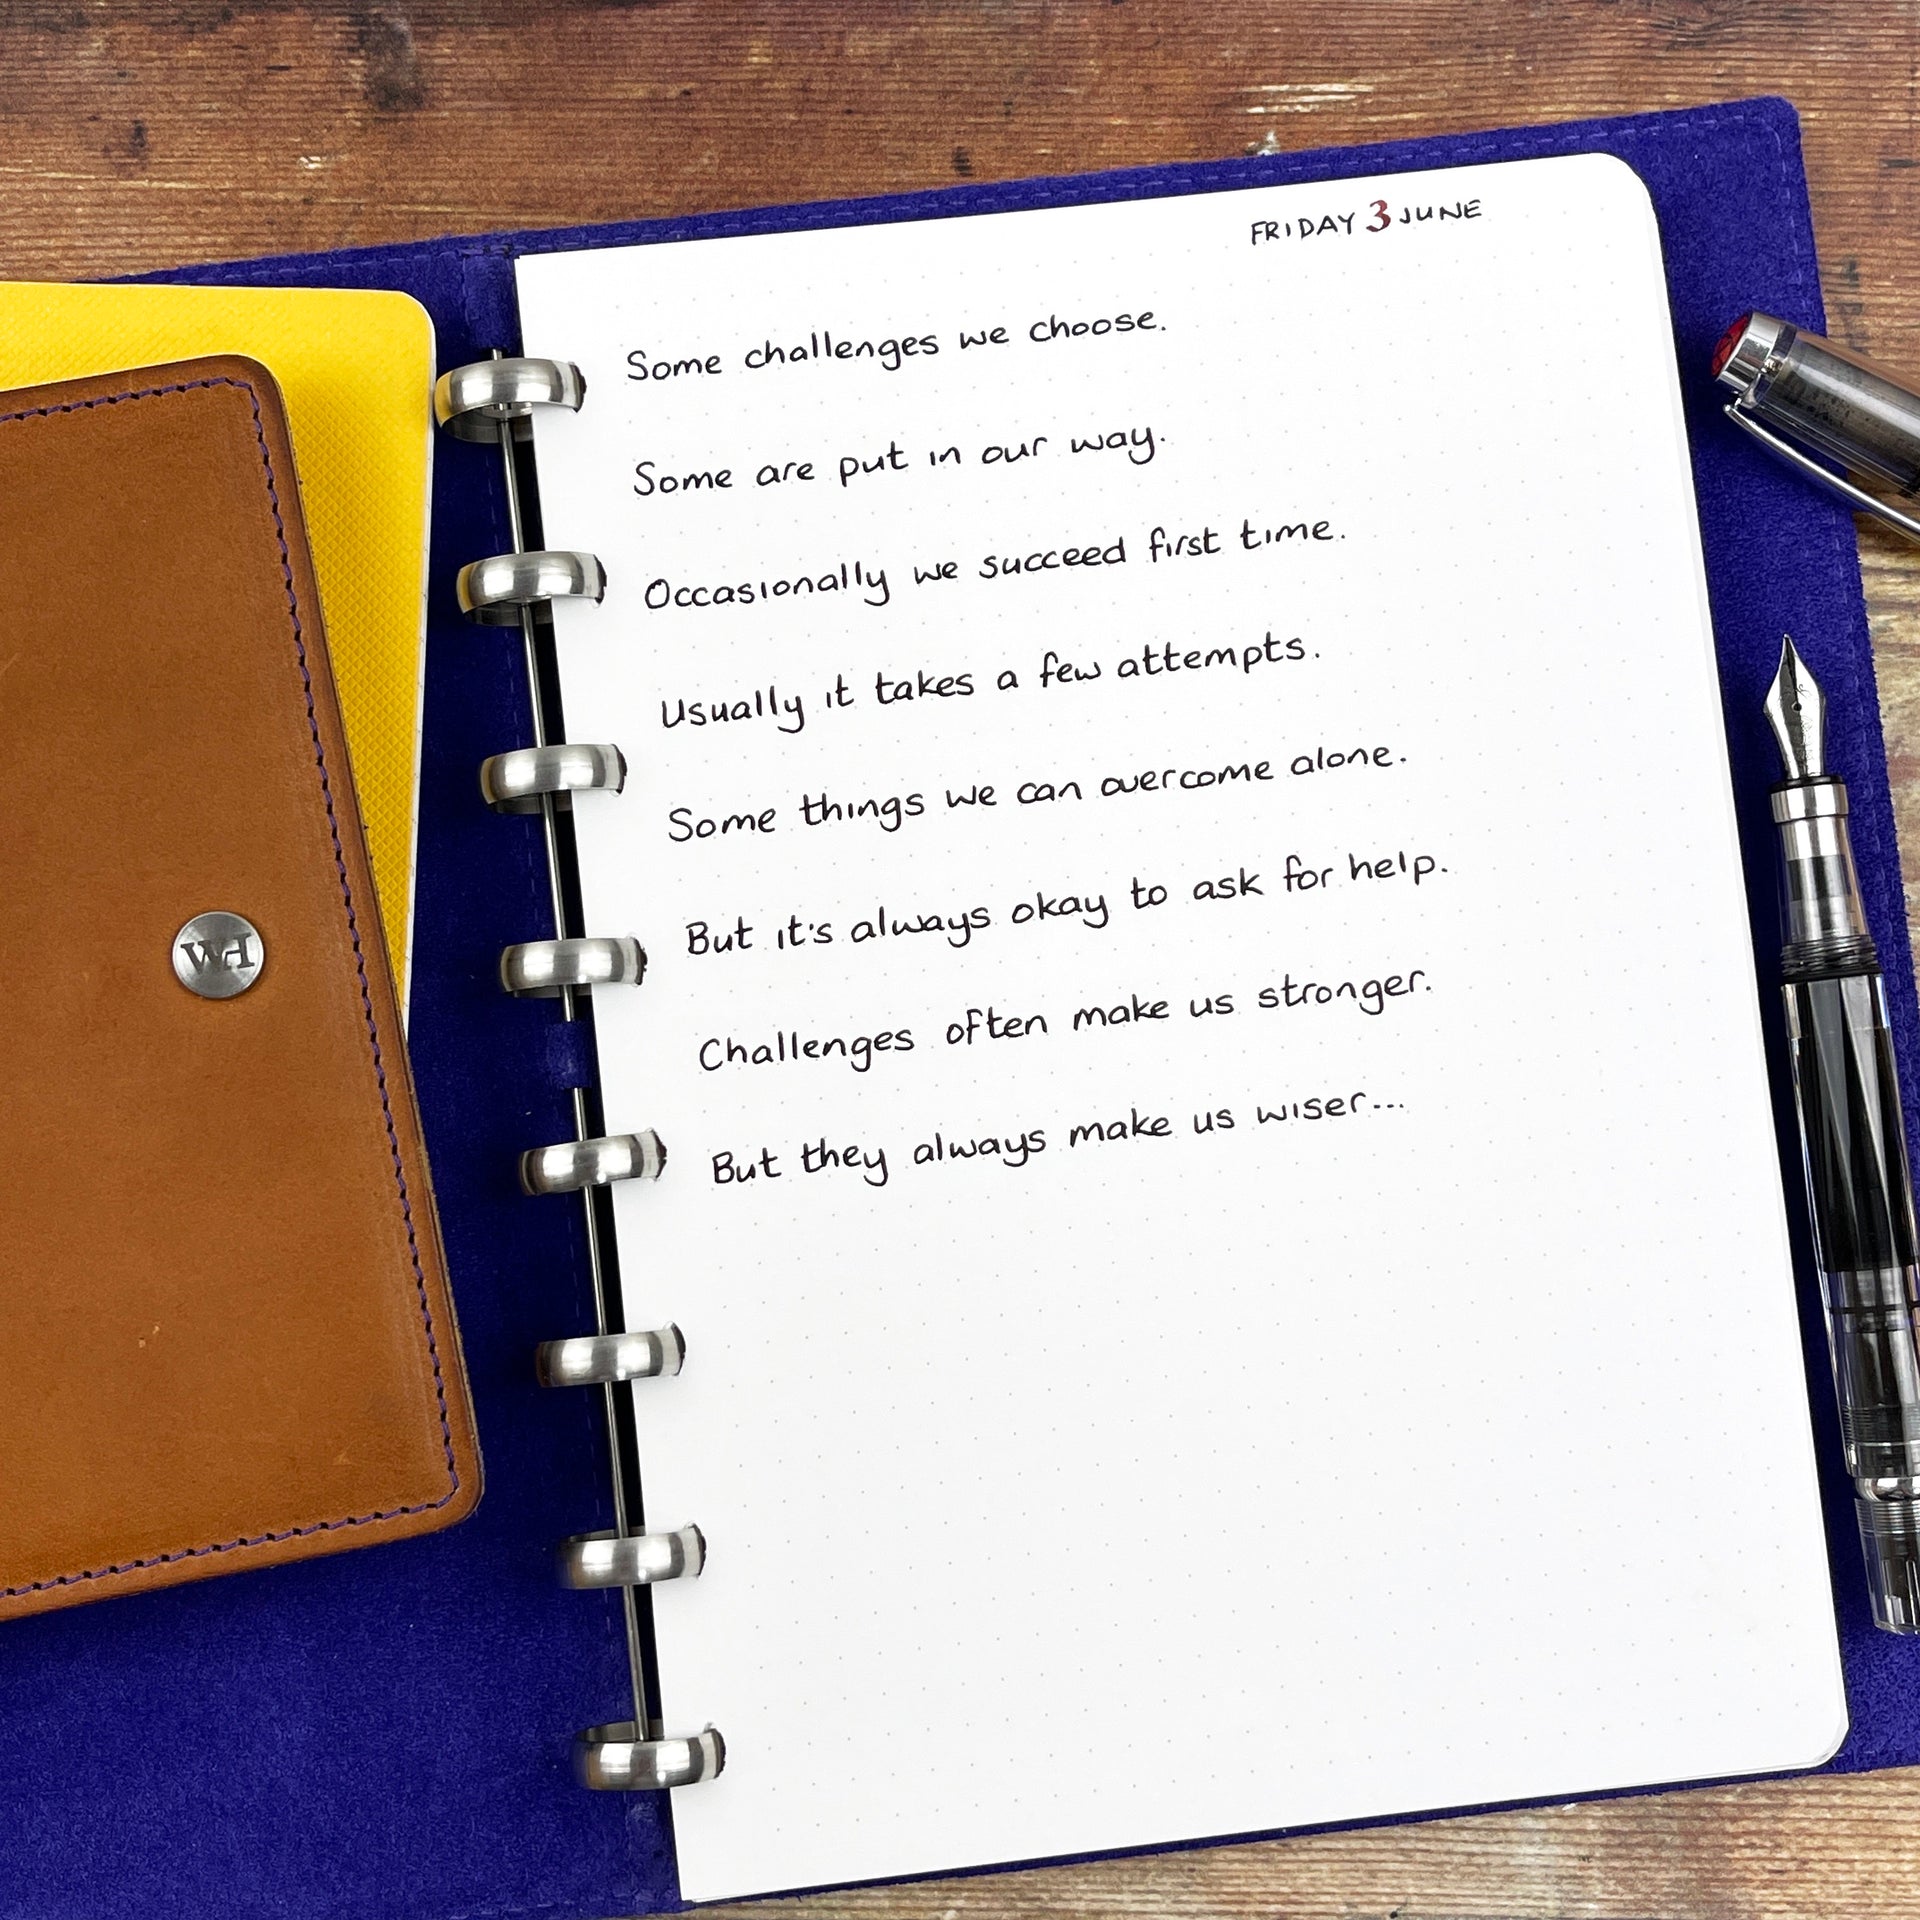 FRIDAY 3 JUNE
Some challenges we choose.
Some are put in our way.
Occasionally we succeed first time.
Usually it takes a few attempts.
Some things we can overcome alone.
But it's always okay to ask for help.
Challenges often make us stronger.
But they always make us wiser...
WH